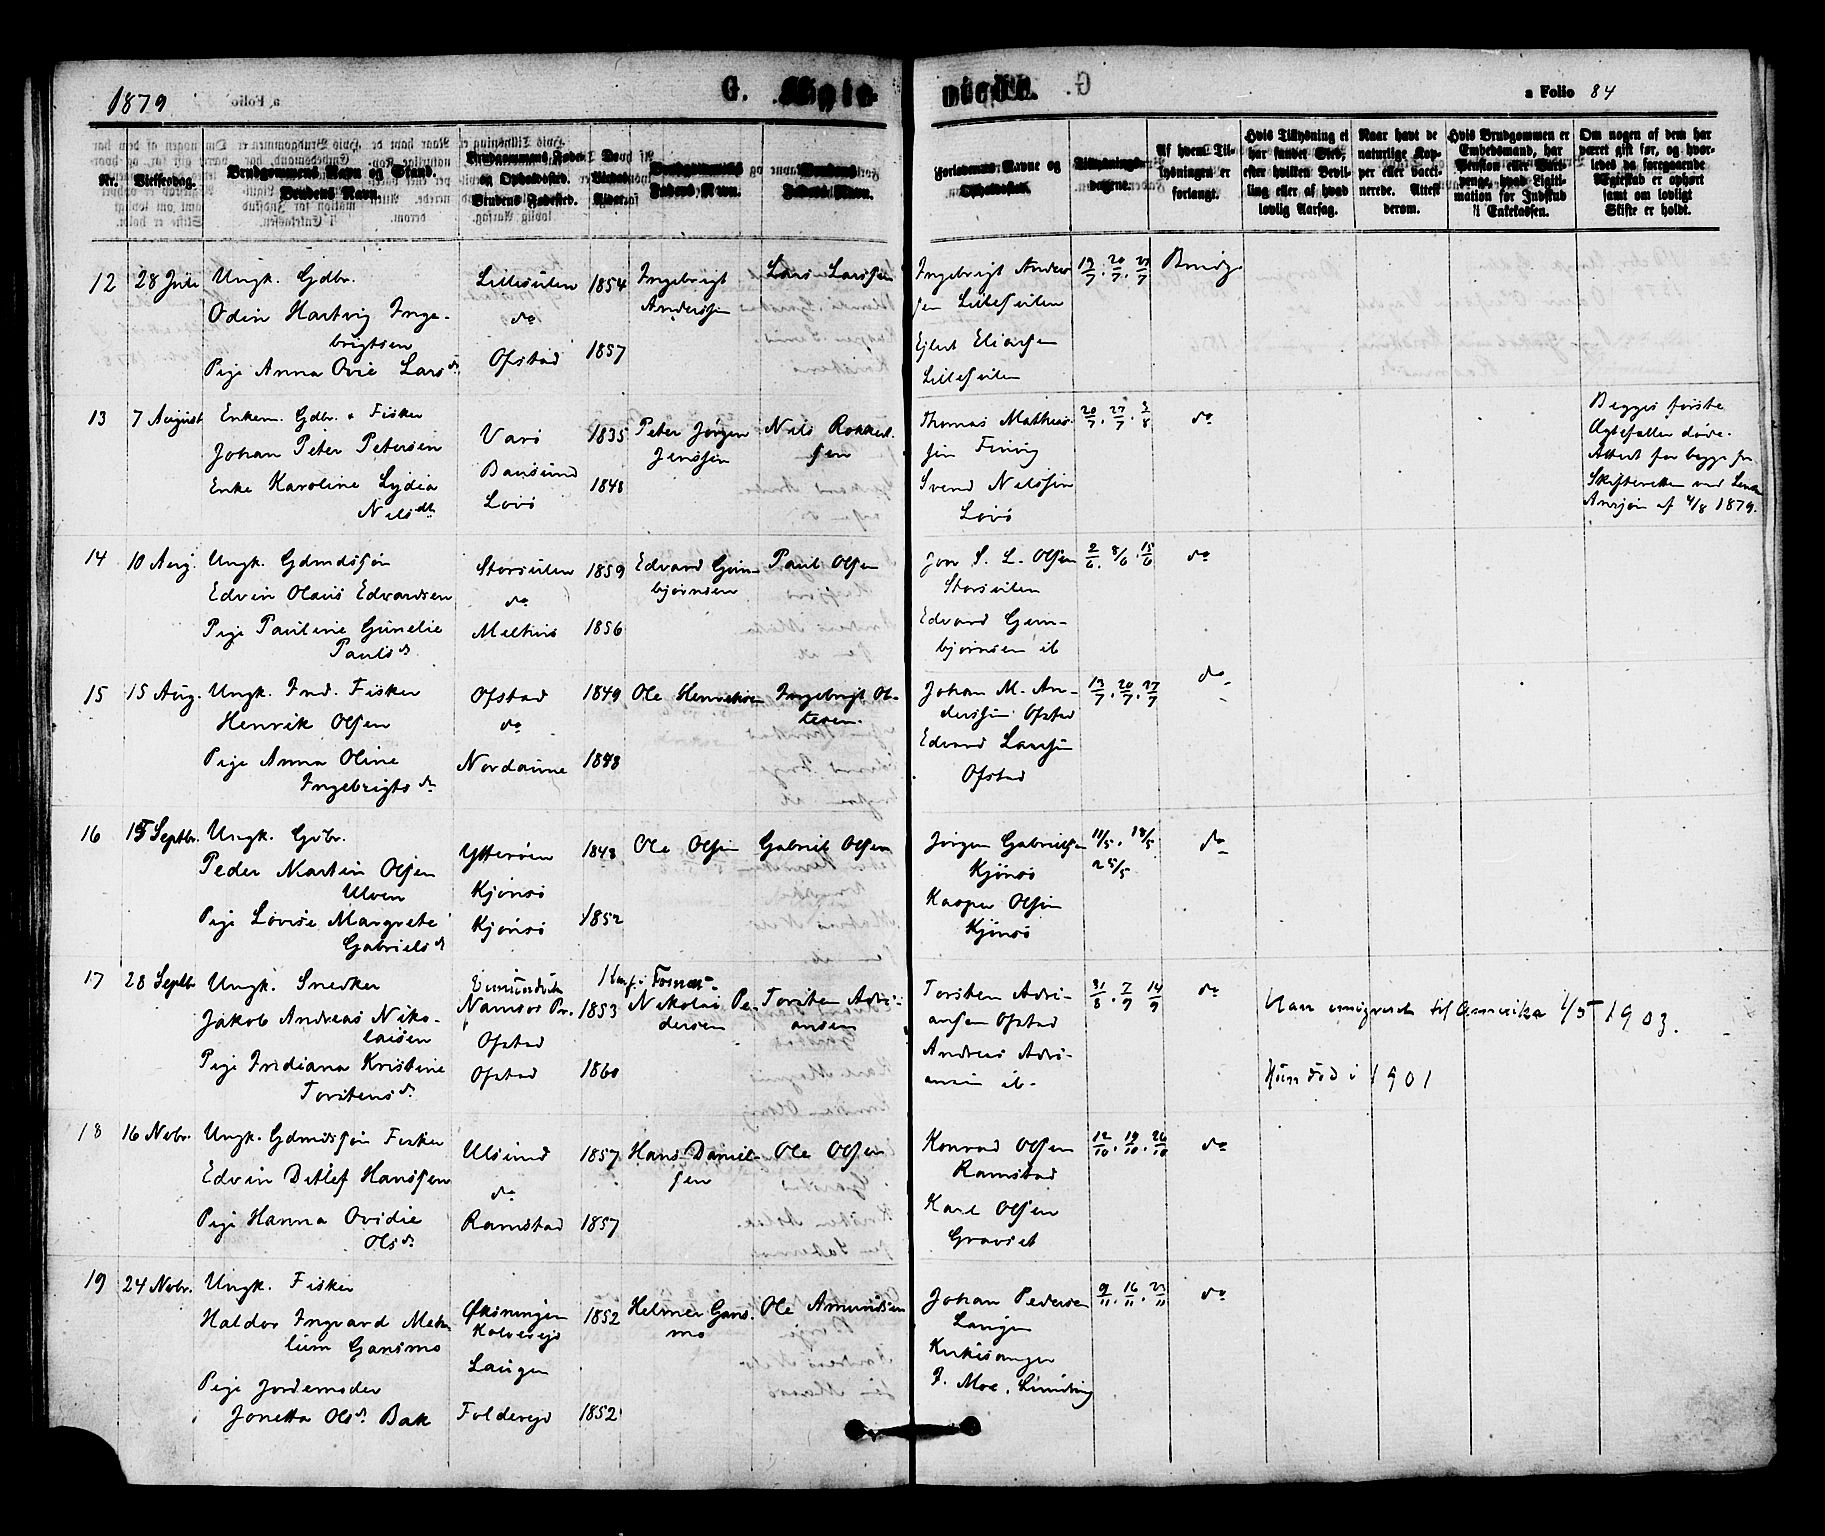 1879
G. Ægte-
viede.
a Folio 84
Nr.
Vielsesdag.
Brudgommens Navn og Stand.
Brudens Navn
Brudgommens Føde-
og Opholdsted.
Brudens Fødested.
Brudgommens
Faders Navn.
Brudens
Faders Navn.
Forlovernes Navne og
Opholdssted.
Tillysnings-
dagene.
Af hvem Til-
lysningen er
forlangt.
Hvis Tillysning ei
har fundet Sted,
efter hvilken Bevil-
ling eller af hvad
lovlig Aarsag.
Naar havt de
naturlige Kop-
per eller vacci-
nerede. Attest
derom.
Hvis Brudgommen er
Embedsmand, har
Pension eller Vart-
penge, hvad Legiti-
mation for Indskud
i Enkekassen.
Om nogen af dem har
været gift før, og hvor-
ledes da foregaaende
Ægteskab er ophørt
samt om lovligt
Skifte er holdt.
12 28 Juli Ungk. Gdbr.
Odin Hartvig Inge-
brigtsen
Pige Anna Ovie Larsdr
Lillesulen
do
Ofstad
1854
1857
Ingebrigt
Anderssen
Lars Larssen
Ingebrigt Anders-
sen Lillesulen
Ejlert Eliassen
Lillesulen
13/7. 20/7. 27/7
Brudg.
13 7 August Enkem. Gdbr. + Fisker
Johan Peter Petersen
Enke Karoline Lydia
Nilsdtr
Varø
Bansund
Lovø
1835
1848
Peter Jørgen
Jenssen
Nils Rokkes-
sen
Thomas Mathias-
sen Finvig
Svend Nilssen
Lovø
20/7. 27/7. 3/8
do
Begges første
Ægtefæller døde.
Attest for begge fra
Skifteretten ved Lens-
4/8 1879.
14 10 Aug. Ungk. Gdmdssøn
Edvin Olaus Edvardsen
Pige Pauline Gunelie
Paulsdr
Storsulen
do
Melhus
1859
1856
Edvard Gun-
bjørnsen
Paul Olsen
Jon S. L. Olsen
Storsulen
Edvard Gun-
bjørnsen ib
2/6. 8/6. 15/6
do
15 15 Aug. Ungk. Ind. Fisker
Henrik Olsen
Pige Anna Oline
Ingebrigtsdr
Ofstad
do
Nordaune
1849
1848
Ole Henriksen
Ingebrigt Ot-
tesen.
Johan M. An-
derssen Ofstad
Edvard Larssen
Ofstad
13/7. 20/7. 27/7
do
16 15 Septbr. Ungk. Gdbr.
Peder Martin Olsen
Ulven
Pige Lovise Margrete
Gabrielsdr
Ytterøen
Kjønsø
Kjønsø
1848
1852
Ole Olsen
Gabriel Olsen
Jørgen Gabrielsen
Kjønsø
Kasper Olsen
Kjønsø
11/5. 18/5.
25/5
do
17 28 Septbr Ungk. Snedker
Jakob Andreas Niko-
laisen
Pige Indiana Kristine
Torstensdr
Namsos Pr.
Ofstad
Ofstad
1853
1860
Nikolai Pe-
dersen
Torsten Adri-
ansen
Torsten Adri-
ansen Ofstad
Andreas Adri-
ansen ib.
31/8. 7/9. 14/9
do
Han emigreret til Amerika 1/5 1903.
Hun død i 1901
18 16 Novbr. Ungk. Gdmdssøn Fisker
Edvin Ditlef Hanssen
Pige Hanna Ovidie
Olsdr
Ulsund
do
Ramstad
1857
1857
Hans Daniel-
sen
Ole Olsen
Konrad Olsen
Ramstad
Karl Olsen
Gravset
12/10. 19/10. 26/10
do
19 24 Novbr. Ungk. Fisker
Haldor Ingvard Meh-
lum Gansmo
Pige Jordemoder
Jonetta Olsdr Bak
Øksningen
Kolvereid
Laugen
Foldereid
1852
1852
Helmer Gans-
mo
Ole Amundsen
Johan Pedersen
Laugen
Kirkesanger
P. Moe, Lunding
9/11. 16/11. 23/11
do